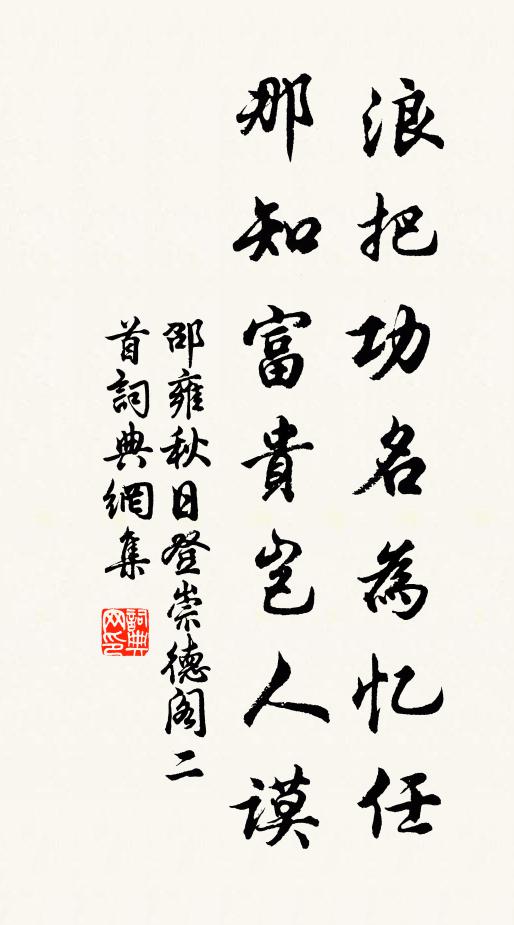 浪把功名為忆任
那知富貴岂人謨
邵雍秋日登崇德阁二
首詞典網集
詞典
网印